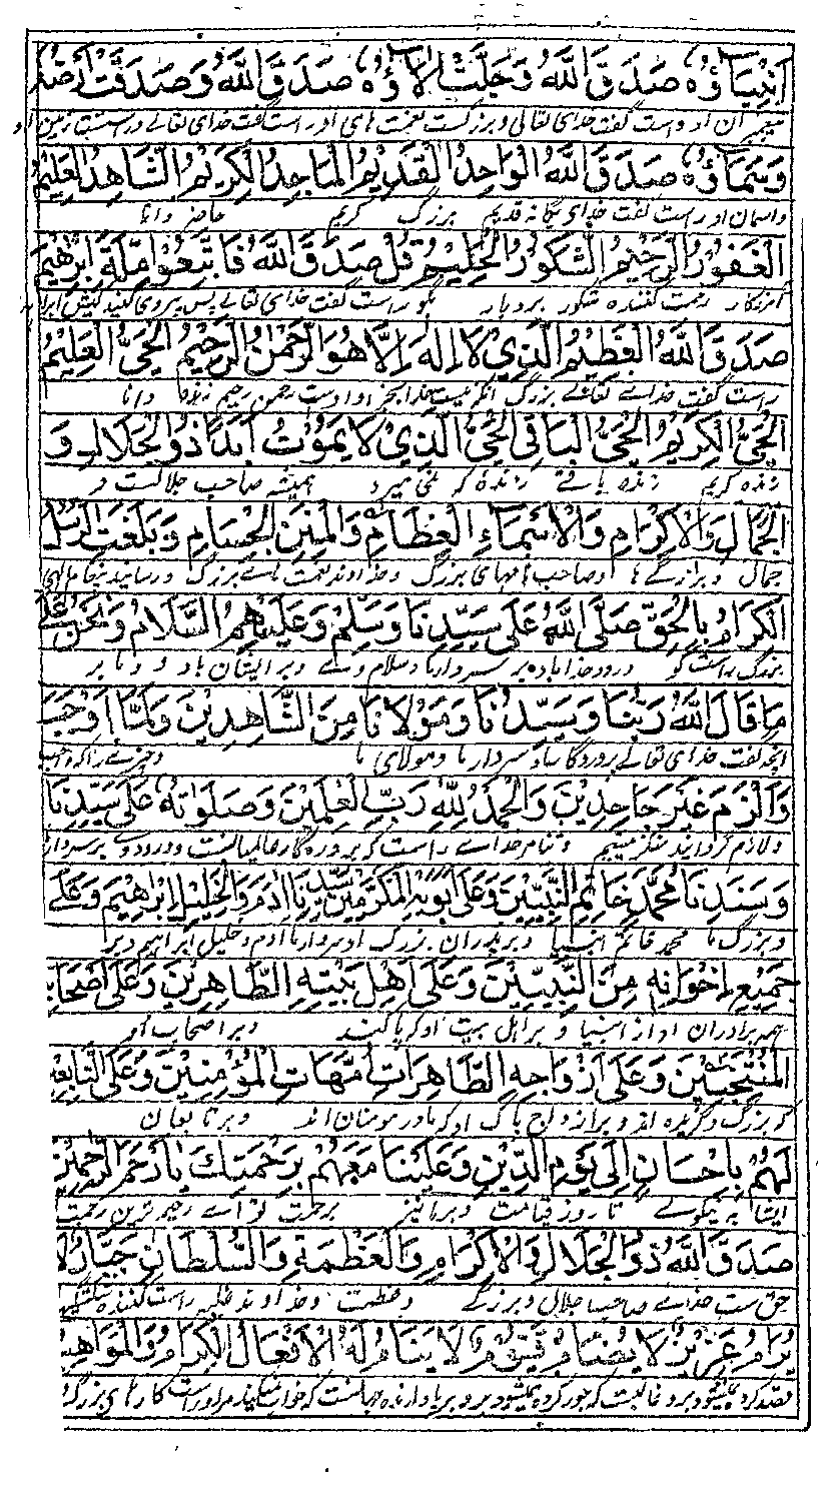 اَنْبِيَاؤُهُ صَدَقَ اللّٰهُ وَجَلَّتْ اٰلَاؤُهُ صَدَقَ اللّٰهُ وَصَدَقَتْ اَرْضُهُ
پیغمبران او راست گفت خدای تعالی و بزرگست نعمت های او راست گفت خدای تعالے و راست زمین او
وَسَمَاؤُهُ صَدَقَ اللّٰهُ الْوَاحِدُ الْقَدِيْمُ الْمَاجِدُ الْكَرِيْمُ الشَّاهِدُ الْعَلِيْمُ
و آسمان او راست گفت خدای یگانه قدیم بزرگ کریم حاضر دانا
الْغَفُوْرُ الرَّحِيْمُ الشَّكُوْرُ الْحَلِيْمُ قُلْ صَدَقَ اللّٰهُ فَاتَّبِعُوْا مِلَّةَ اِبْرٰهِيْمَ
آمرزگار رحمت کننده شکور بردبار بگو راست گفت خدای تعالے پس پیروی کنید کیش ابراہیم
صَدَقَ اللّٰهُ الْعَظِيْمُ الَّذِيْ لَا اِلٰهَ اِلَّا هُوَ الرَّحْمٰنُ الرَّحِيْمُ الْحَيُّ الْعَلِيْمُ
راست گفت خداے تعالے بزرگ آنکه نیست خدا بجز او اوست رحمن رحیم زنده دانا
الْحَيُّ الْكَرِيْمُ الْحَيُّ الْبَاقِي الْحَيُّ الَّذِيْ لَا يَمُوْتُ اَبَدًا ذُو الْجَلَالِ وَ
زنده کریم زنده باقے زنده که نمی میرد همیشه صاحب جلالت و
الْجَمَالِ وَالْاِكْرَامِ وَالْاَسْمَاءِ الْعِظَامِ وَالْمِنَنِ الْجِسَامِ وَبَلَّغَتِ الرُّسُلُ
جمال و بزرگے ها و صاحب نامهای بزرگ و خداوند نعمت هاے بزرگ و رسانیدند
الْكِرَامُ بِالْحَقِّ صَلَّى اللّٰهُ عَلٰى سَيِّدِنَا وَسَلَّمَ وَعَلَيْهِمُ السَّلَامُ وَنَحْنُ عَلٰى
بزرگ راست گو درود خدا باد بر سردار ما و سلام وے و بر ایشان باد و ما بر
مَا قَالَ اللّٰهُ رَبُّنَا وَسَيِّدُنَا وَمَوْلَانَا مِنَ الشَّاهِدِيْنَ وَلِمَا اَوْجَبَ
آنچه گفت خدای تعالے پروردگار ما و سردار ما و مولای ما و چیزے را که واجب
وَاَلْزَمَ غَيْرَ جَاحِدِيْنَ وَالْحَمْدُ لِلّٰهِ رَبِّ الْعٰلَمِيْنَ وَصَلَوَاتُهُ عَلٰى سَيِّدِنَا
و لازم گردانید منکر نیستیم و ثنا مر خداے راست که پروردگار عالمیانست و درود وے بر سردار ما
وَسَنَدِنَا مُحَمَّدٍ خَاتَمِ النَّبِيِّيْنَ وَعَلٰى اَبَوَيْهِ الْمُكَرَّمَيْنِ سَيِّدِنَا اٰدَمَ وَالْخَلِيْلِ اِبْرٰهِيْمَ وَعَلٰى
و بزرگ ما محمد خاتم انبیا و بر پدران بزرگ او سردار ما آدم و خلیل ابراہیم و بر
جَمِيْعِ اِخْوَانِهِ مِنَ النَّبِيِّيْنَ وَعَلٰى اَهْلِ بَيْتِهِ الطَّاهِرِيْنَ وَعَلٰى اَصْحَابِهِ
همه برادران او از انبیا و بر اہل بیت او که پاکیند و بر اصحاب او
الْمُنْتَجَبِيْنَ وَعَلٰى اَزْوَاجِهِ الطَّاهِرَاتِ اُمَّهَاتِ الْمُؤْمِنِيْنَ وَعَلَى التَّابِعِيْنَ
که بزرگ و گزیده اند و بر ازواج پاک او که مادر مومنان اند و بر تابعان
لَهُمْ بِاِحْسَانٍ اِلٰى يَوْمِ الدِّيْنِ وَعَلَيْنَا مَعَهُمْ بِرَحْمَتِكَ يَا اَرْحَمَ الرَّاحِمِيْنَ
ایشان به نیکوے تا روز قیامت و بر ما نیز برحمت تو اے رحیم ترین رحمت
صَدَقَ اللّٰهُ ذُو الْجَلَالِ وَالْاِكْرَامِ وَالْعَظَمَةِ وَالسُّلْطَانِ جَبَّارٌ لَا
حق ست خداے صاحب جلال و بزرگے و عظمت و خداوند غلبه راست کننده
يُرَامُ عَزِيْزٌ لَا يُضَامُ قَيُّوْمٌ لَا يَنَامُ لَهُ الْاَفْعَالُ الْكِرَامُ وَالْمَوَاهِبُ
قصد کرده نمیشود برو غالبست که جور کرده نمیشود برو برپا دارنده جهانست که خواب نمیکند مر اوراست کارهای بزرگ